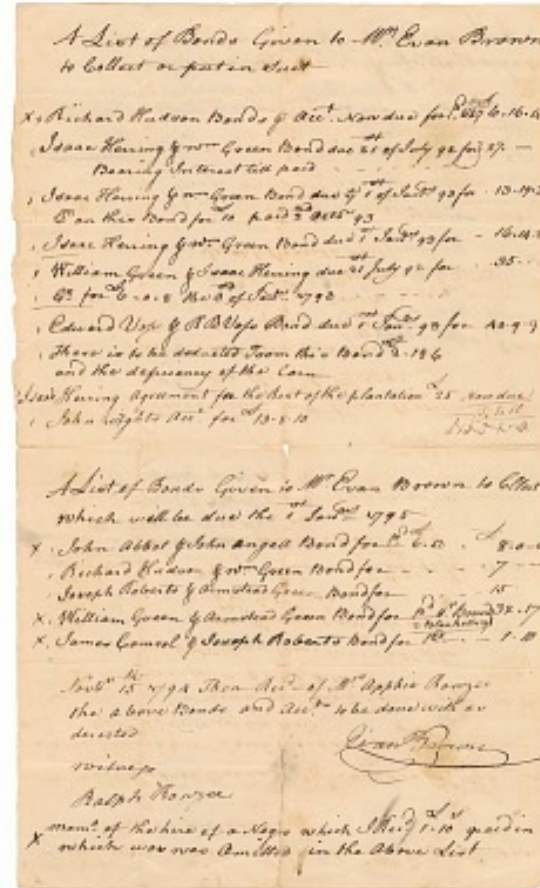 A List of Bonds Given to Mr. Evan Brown
to Collect or put in Suit
x Richard Hudson Bonds & Acct. Now due for 6-16-
Isaac Herring & Wm Green Bond due 21st of July 92 for 27 -
Bearing Interest till paid
Isaac Herring & Wm Green Bond due ye 1st of Janr 93 for 13-19-
on this Bond for 10 paid 3d 93
Isaac Herring & Wm Green Bond due 1st Janr 93 for - 16-14-
William Green & Isaac Herring due 21st July 92 for 35 -
Do for 6-0-8 the of Janr 1793
Edward Voss & R B Voss Bond due 1st Janr 93 for 42-9-
There is to be deducted From this Bond 2-18-6
and the deficiency of the Corn
Isaac Herring Agreement for the Rent of the plantation 25 now due
John Wights Acct for 13-8-10
A List of Bonds Given to Mr Evan Brown to Collect
which will be due the 1st Janr 1795
x John Abbot & John Angell Bond for 8-0-
Richard Hudson & Wm Green Bond for - - 7 -
Joseph Roberts & Armstead Green Bond for 15
x William Green & Armstead Green Bond for 34-17
x James Council & Joseph Roberts Bond for 1-10
Novbr 15th 1794 Then Recd of Mrs Apphia Rowzee
the above Bonds and Accts to be done with as
derected
Evan Brown
Witness
Ralph Rowzee
x memo. of the hire of a Negro which I Recd 1-10 paid in
which was was Amitted in the Above List